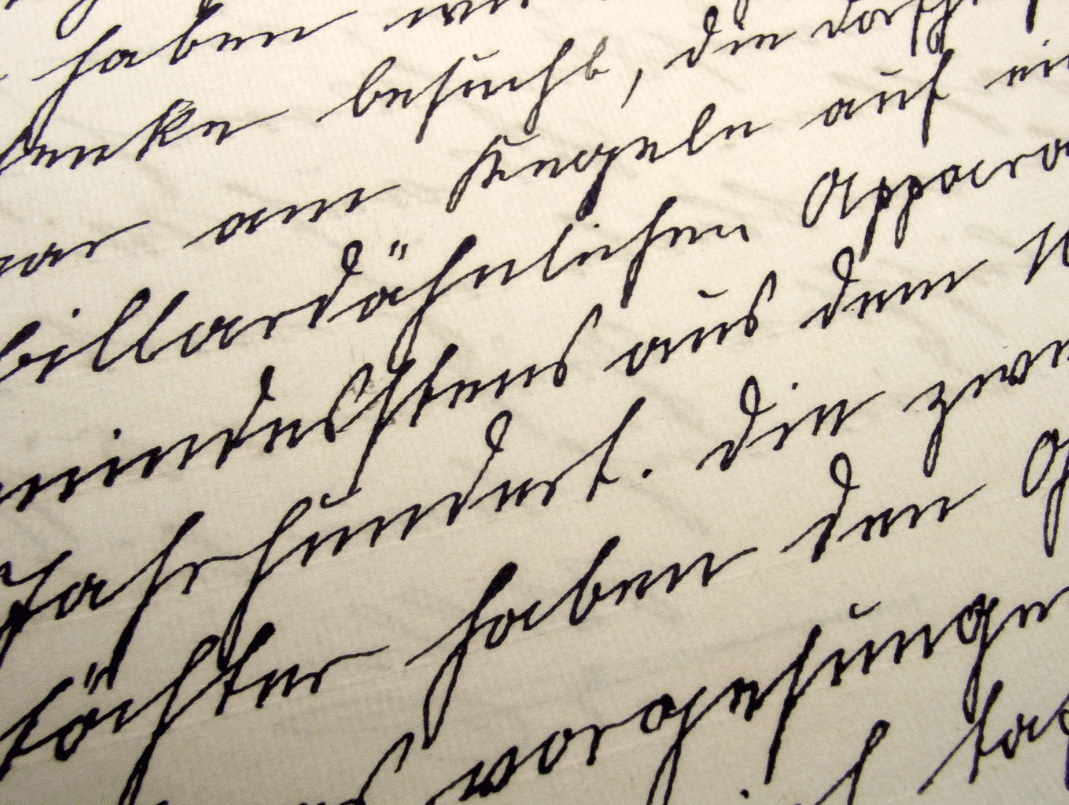 haben wir
besucht, die
war am Kegeln auf ein
billardähnlichen Appara
mindestens aus dem
Jahrhundert. Die zwe
töchter haben den
vorgesunge